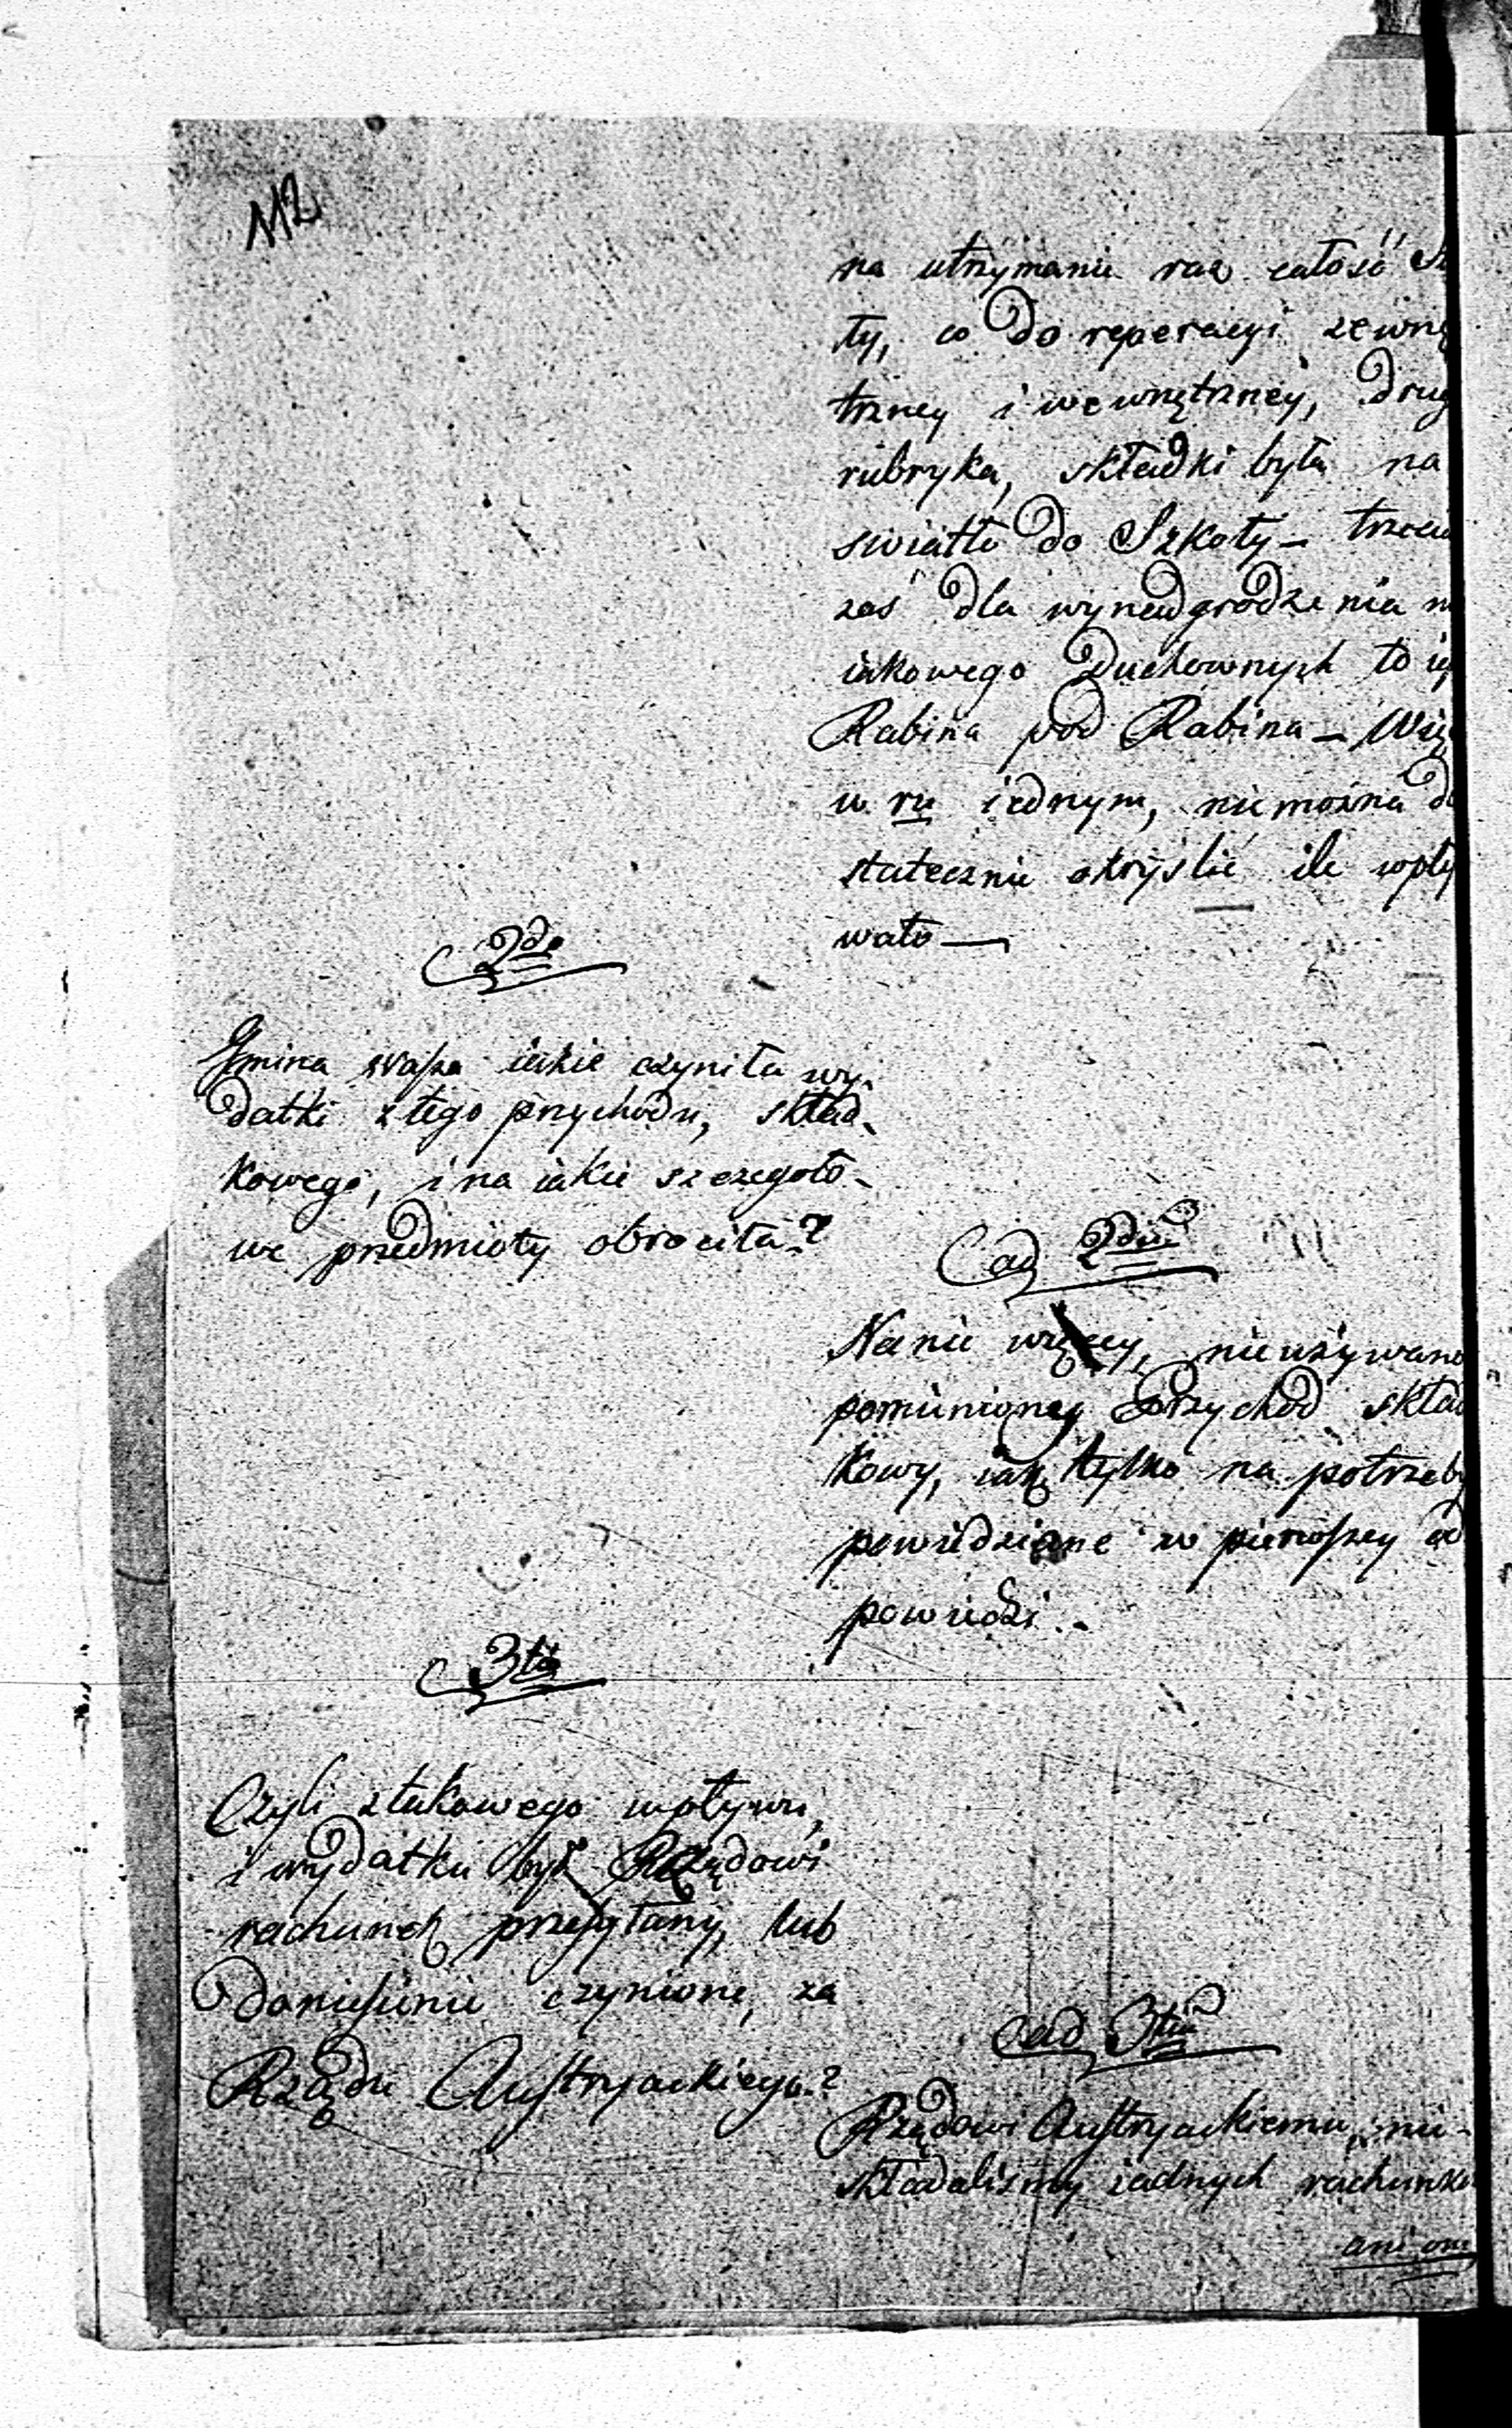 112
na utrzymanie raz całość
ty, co do reperacyi zewnę
trzney i wewnętrzney, drug
rubryka, składki była na
swiatło do Szkoły – trzecia
zaś dla wynadgrodzenia
iakowego Duchownych to
Rabina pod Rabina –
w ru iednym, niemożna do
statecznie okryslić ile wpły
wało —
2do
Gmina wasza iakie czyniła wy-
datki z tego przychodu, skład-
kowego, i na iakie szczegoło-
we przedmioty obrociła?
ad 2dum
Na nic więcey, nieużywano
pomieniony Przychod skład
kowy, iak tylko na potrzeby
powiedziane w pierwszey od
powiedzi. –
3tio
Czyli z takowego wpływu,
i wydatku był Rządowi
rachunek przesyłany, lub
doniesienie czynione, za
Rządu Austryackiego?
ad 3tium
Rządowi Austryackiemu, nie-
składalismy żadnych rachunko
ani